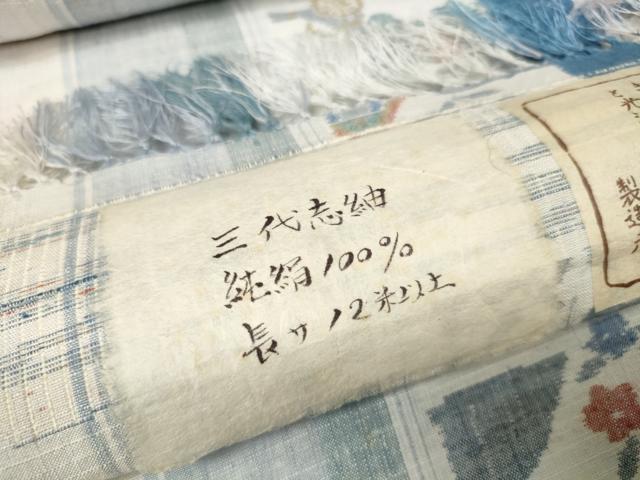 三代志紬
純絹100%
長サ12米以上
製造